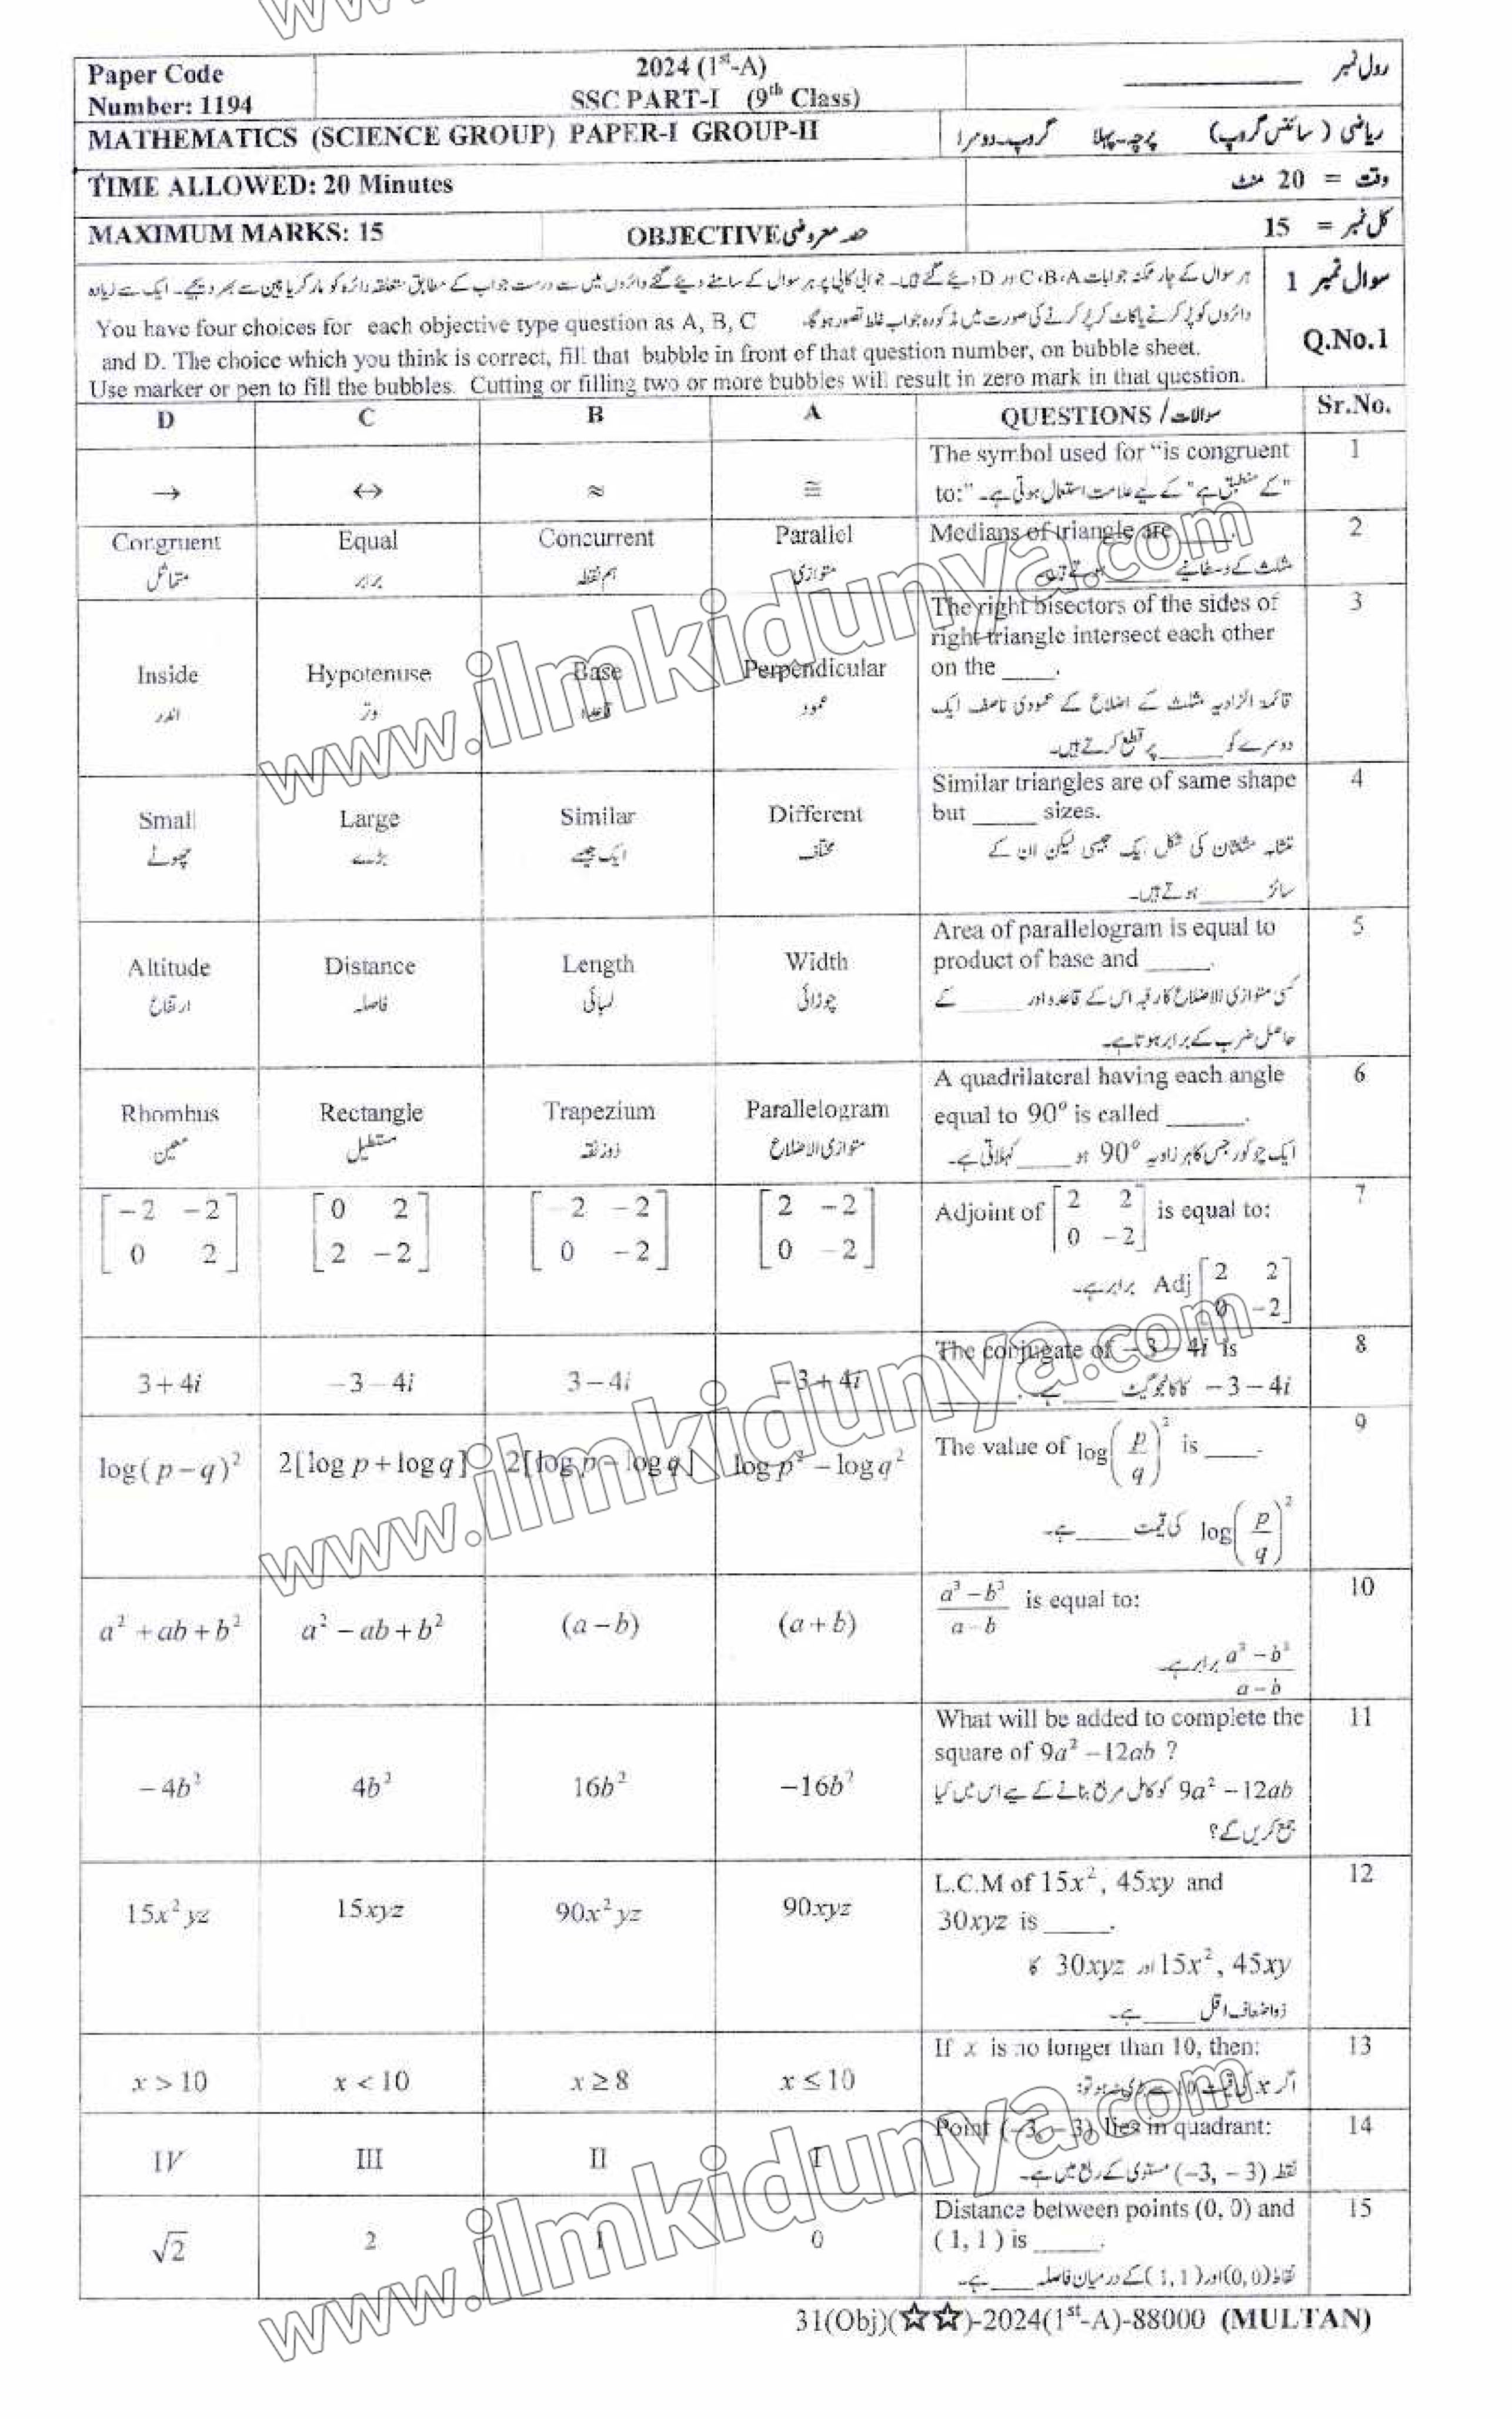 Paper Code
Number: 1194
2024 (1st-A)
SSC PART-I (9th Class)
رول نمبر ________
MATHEMATICS (SCIENCE GROUP) PAPER-I GROUP-II
ریاضی (سائنس گروپ) پرچہ-پہلا گروپ-دوسرا
TIME ALLOWED: 20 Minutes
وقت = 20 منٹ
MAXIMUM MARKS: 15
OBJECTIVE حصہ معروضی
کل نمبر = 15
سوال نمبر 1
Q.No.1
ہر سوال کے چار ممکنہ جوابات C،B،A اور D دیئے گئے ہیں۔ جوابی کاپی پر ہر سوال کے سامنے دیئے گئے دائروں میں سے درست جواب کے مطابق متعلقہ دائرہ کو مارکر یا پین سے بھر دیجیے۔ ایک سے زیادہ
دائروں کو پُر کرنے یا کاٹ کر پُر کرنے کی صورت میں مذکورہ جواب غلط تصور ہو گا۔
You have four choices for each objective type question as A, B, C
and D. The choice which you think is correct, fill that bubble in front of that question number, on bubble sheet.
Use marker or pen to fill the bubbles. Cutting or filling two or more bubbles will result in zero mark in that question.
D C B A QUESTIONS / سوالات Sr.No.
The symbol used for "is congruent 1
to:" "کے منطبق ہے" کے لیے علامت استعمال ہوتی ہے۔
→ ↔ ≈ ≅
Medians of triangle are ____. 2
مثلث کے وسطانیے ____ ہوتے ہیں۔
Congruent Equal Concurrent Parallel
متماثل برابر ہم نقطہ متوازی
The right bisectors of the sides of 3
right triangle intersect each other
on the ____.
قائمۃ الزاویہ مثلث کے اضلاع کے عمودی ناصف ایک
دوسرے کو ____ پر قطع کرتے ہیں۔
Inside Hypotenuse Base Perpendicular
اندر وتر قاعدہ عمود
Similar triangles are of same shape 4
but ____ sizes.
متشابہ مثلثان کی شکل ایک جیسی لیکن ان کے
سائز ____ ہوتے ہیں۔
Small Large Similar Different
چھوٹے بڑے ایک جیسے مختلف
Area of parallelogram is equal to 5
product of base and ____.
کسی متوازی الاضلاع کا رقبہ اس کے قاعدہ اور ____ کے
حاصل ضرب کے برابر ہوتا ہے۔
Altitude Distance Length Width
ارتفاع فاصلہ لمبائی چوڑائی
A quadrilateral having each angle 6
equal to 90° is called ____.
ایک چوکور جس کا ہر زاویہ 90° ہو ____ کہلاتی ہے۔
Rhombus Rectangle Trapezium Parallelogram
معین مستطیل ذوزنقہ متوازی الاضلاع
Adjoint of [2 2; 0 -2] is equal to: 7
Adj [2 2; 0 -2] برابر ہے۔
[-2 -2; 0 2] [0 2; 2 -2] [-2 -2; 0 -2] [2 -2; 0 -2]
The conjugate of -3-4i is 8
____. -3-4i کا کانجوگیٹ ____ ہے۔
3+4i -3-4i 3-4i -3+4i
The value of log(p/q)² is ____. 9
log(p/q)² کی قیمت ____ ہے۔
log(p-q)² 2[log p+log q] 2[log p-log q] log p²-log q²
(a³-b³)/(a-b) is equal to: 10
(a³-b³)/(a-b) برابر ہے۔
a²+ab+b² a²-ab+b² (a-b) (a+b)
What will be added to complete the 11
square of 9a²-12ab ?
9a²-12ab کو کامل مربع بنانے کے لیے اس میں کیا
جمع کریں گے؟
-4b² 4b² 16b² -16b²
L.C.M of 15x², 45xy and 12
30xyz is ____.
15x², 45xy اور 30xyz کا
ذواضعاف اقل ____ ہے۔
15x²yz 15xyz 90x²yz 90xyz
If x is no longer than 10, then: 13
اگر x کی قیمت 10 سے بڑی نہ ہو تو:
x > 10 x < 10 x ≥ 8 x ≤ 10
Point (-3, -3) lies in quadrant: 14
نقطہ (-3, -3) مستوی کے ربع میں ہے۔
IV III II I
Distance between points (0, 0) and 15
(1, 1) is ____.
نقاط (0,0) اور (1,1) کے درمیان فاصلہ ____ ہے۔
√2 2 1 0
31(Obj)(☆☆)-2024(1st-A)-88000 (MULTAN)
www.ilmkidunya.com
www.ilmkidunya.com
www.ilmkidunya.com